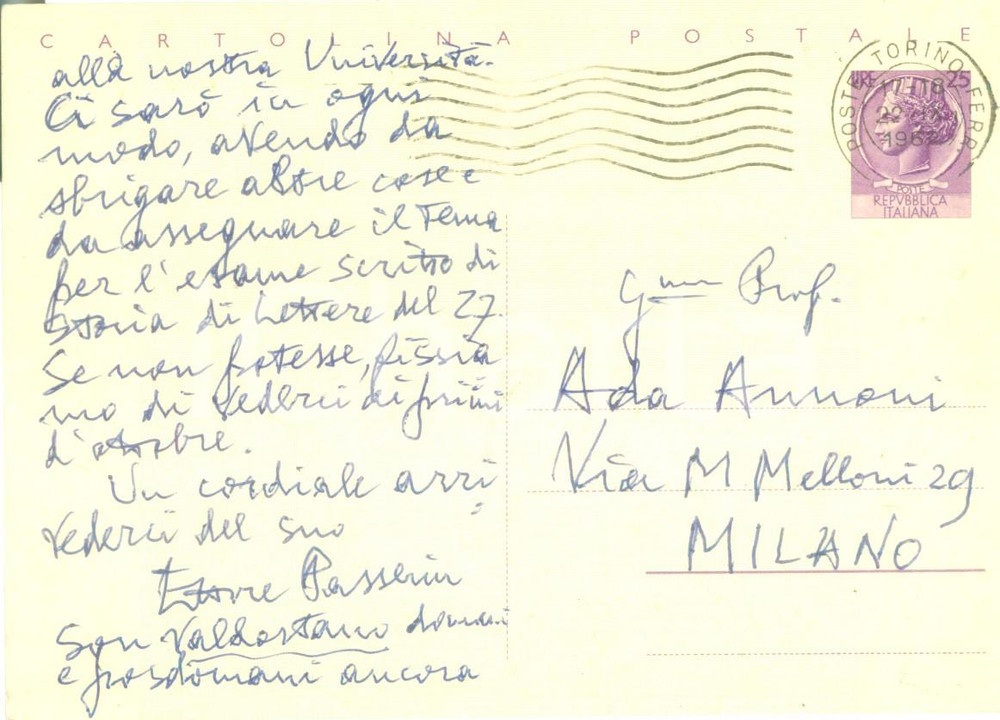 CARTOLINA POSTALE
alla nostra Università.
Ci sarò in ogni
modo, avendo da
sbrigare altre cose e
da assegnare il tema
per l'esame scritto di
Storia di Lettere del 27.
Se non potesse, fissia
mo di vederci ai primi
d'ottobre.
Un cordiale arri
vederci del suo
Ettore Passerin
Son Valdostano domani
e posdomani ancora
POSTE TORINO FERR
17-18
LIRE 25
POSTE
REPVBBLICA
ITALIANA
Prof.
Ada Annoni
Via M Melloni 29
MILANO